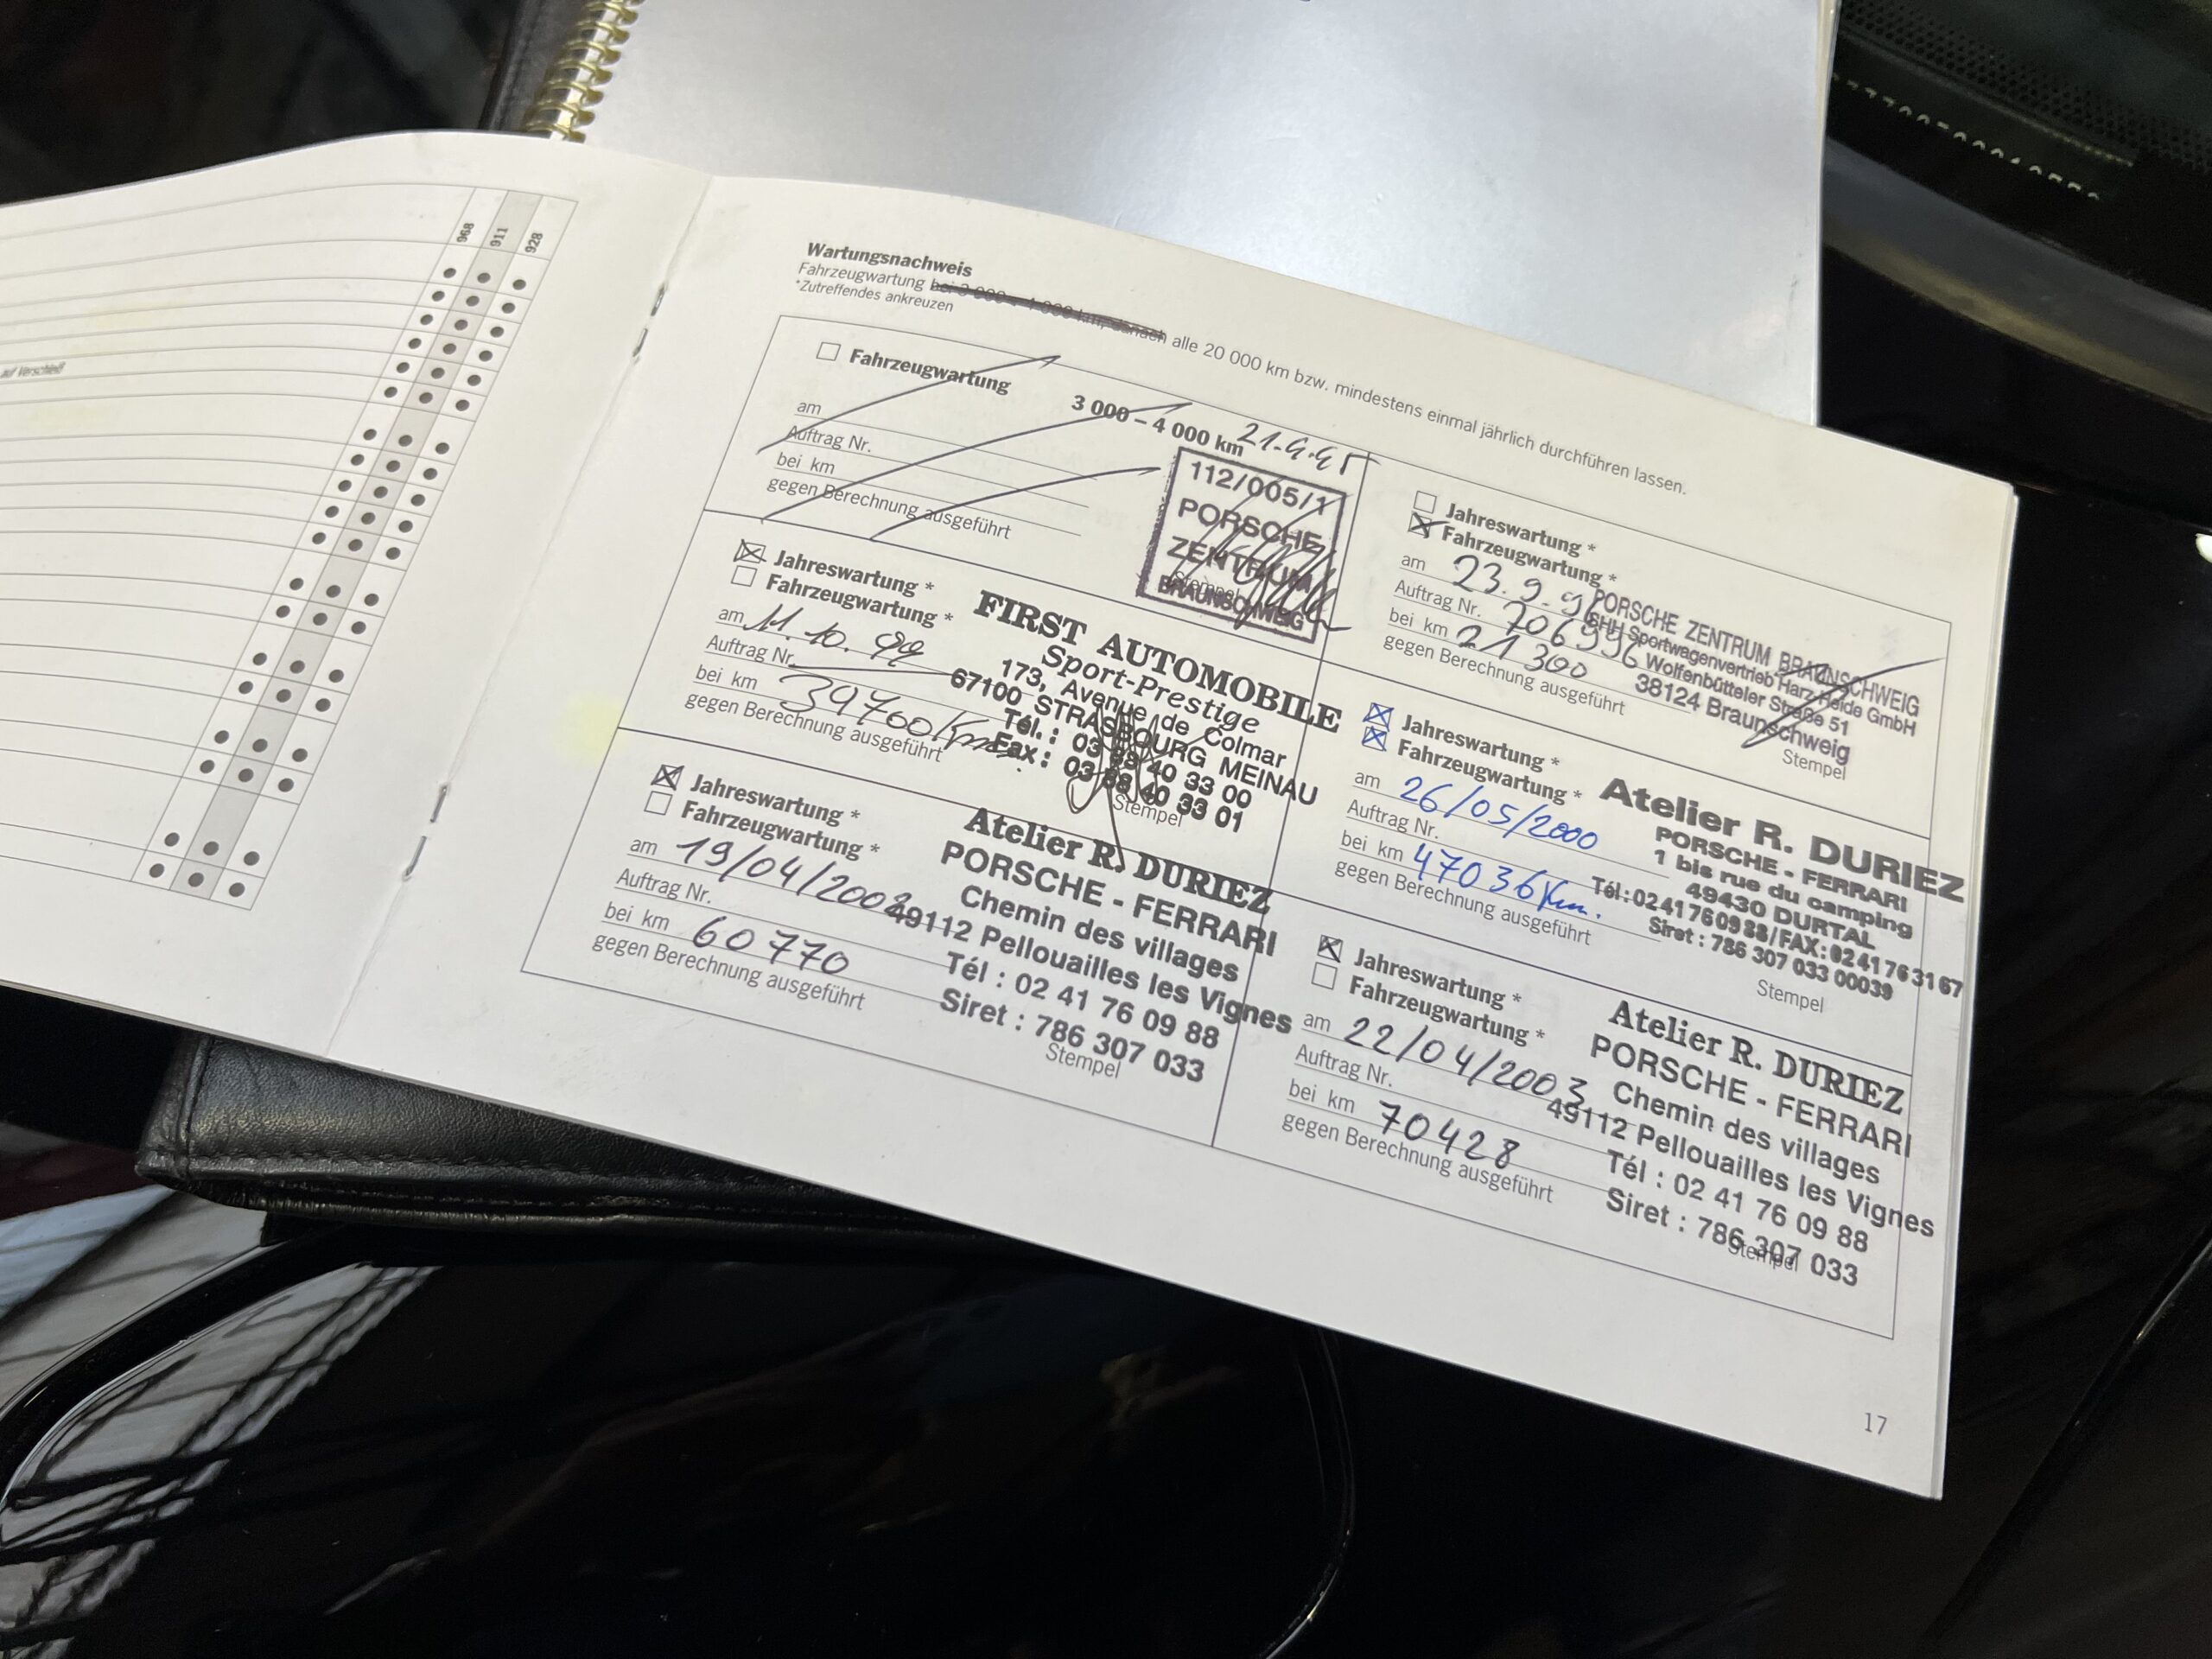 968 911 928
auf Verschleiß
Wartungsnachweis
Fahrzeugwartung bei 3 000 – 4 000 km, danach alle 20 000 km bzw. mindestens einmal jährlich durchführen lassen.
*Zutreffendes ankreuzen
Fahrzeugwartung
3 000 – 4 000 km
am
Auftrag Nr.
bei km
gegen Berechnung ausgeführt
21.9.95
112/005/1
PORSCHE
ZENTRUM
BRAUNSCHWEIG
Stempel
Jahreswartung *
Fahrzeugwartung *
am 23.9.96
Auftrag Nr. 706996
bei km 21 300
gegen Berechnung ausgeführt
PORSCHE ZENTRUM BRAUNSCHWEIG
SHH Sportwagenvertrieb Harz-Heide GmbH
Wolfenbütteler Straße 51
38124 Braunschweig
Stempel
Jahreswartung *
Fahrzeugwartung *
am 11.10.99
Auftrag Nr.
bei km 39700 Km
gegen Berechnung ausgeführt
FIRST AUTOMOBILE
Sport-Prestige
173, Avenue de Colmar
67100 STRASBOURG MEINAU
Tél. : 03 88 40 33 00
Fax : 03 88 40 33 01
Stempel
Jahreswartung *
Fahrzeugwartung *
am 26/05/2000
Auftrag Nr.
bei km 47036 Km.
gegen Berechnung ausgeführt
Atelier R. DURIEZ
PORSCHE - FERRARI
1 bis rue du camping
49430 DURTAL
Tél : 02 41 76 09 88 / FAX : 02 41 76 31 67
Siret : 786 307 033 00039
Stempel
Jahreswartung *
Fahrzeugwartung *
am 19/04/2002
Auftrag Nr.
bei km 60770
gegen Berechnung ausgeführt
Atelier R. DURIEZ
PORSCHE - FERRARI
Chemin des villages
49112 Pellouailles les Vignes
Tél : 02 41 76 09 88
Siret : 786 307 033
Stempel
Jahreswartung *
Fahrzeugwartung *
am 22/04/2003
Auftrag Nr.
bei km 70428
gegen Berechnung ausgeführt
Atelier R. DURIEZ
PORSCHE - FERRARI
Chemin des villages
49112 Pellouailles les Vignes
Tél : 02 41 76 09 88
Siret : 786 307 033
Stempel
17